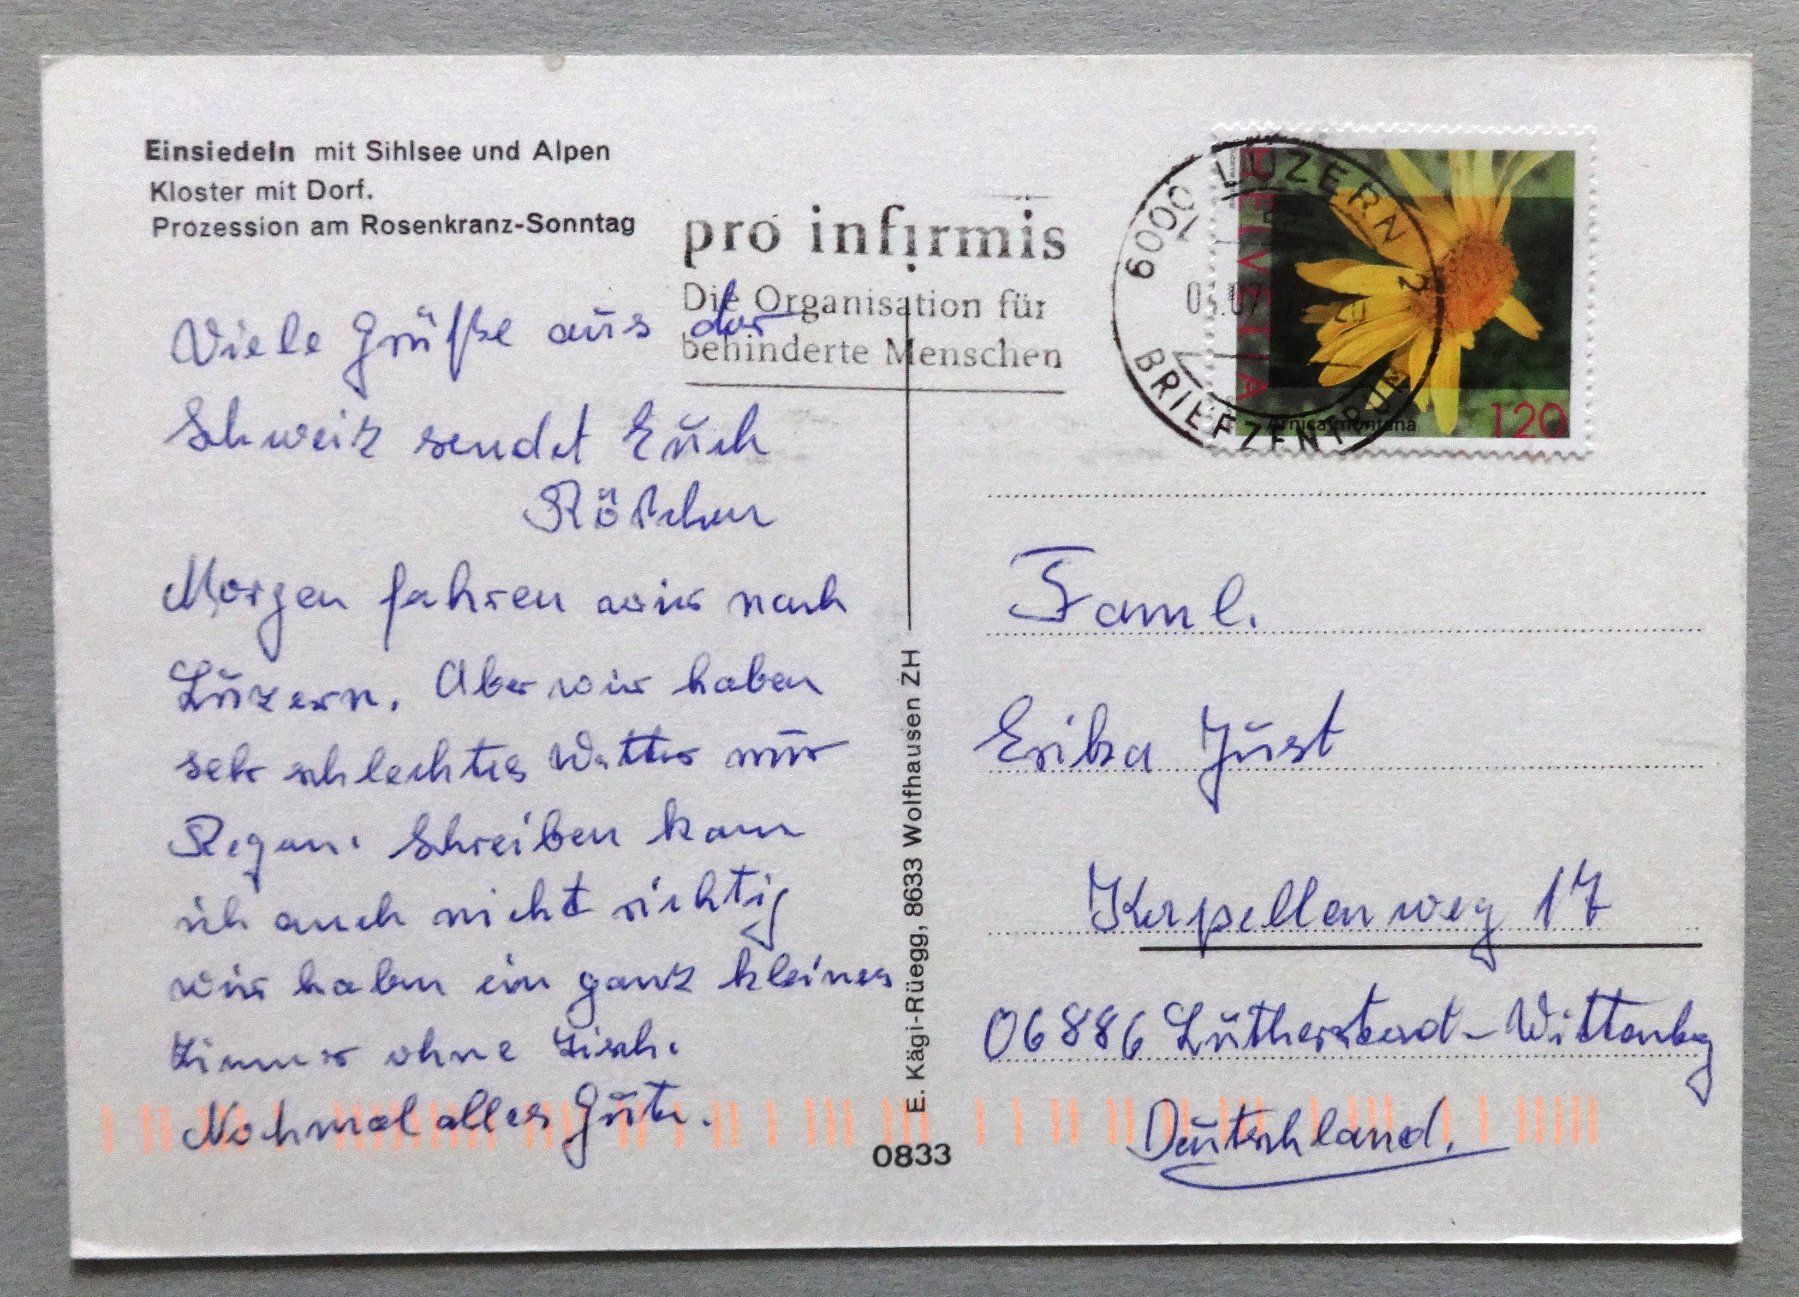 Einsiedeln mit Sihlsee und Alpen
Kloster mit Dorf.
Prozession am Rosenkranz-Sonntag
pro infirmis
Die Organisation für
behinderte Menschen
6000 LUZERN 2
BRIEFZENTRUM
HELVETIA
Arnica montana
120
Viele Grüße aus der
Schweiz sendet Euch
Morgen fahren wir nach
Luzern. Aber wir haben
sehr schlechtes Wetter nur
Regen. Schreiben kann
ich auch nicht richtig
wir haben ein ganz kleines
Zimmer ohne Tisch.
Nochmal alles Gute.
E. Kägi-Rüegg, 8633 Wolfhausen ZH
0833
Faml.
Erika Just
Kapellenweg 17
06886 Lutherstadt-Wittenberg
Deutschland.